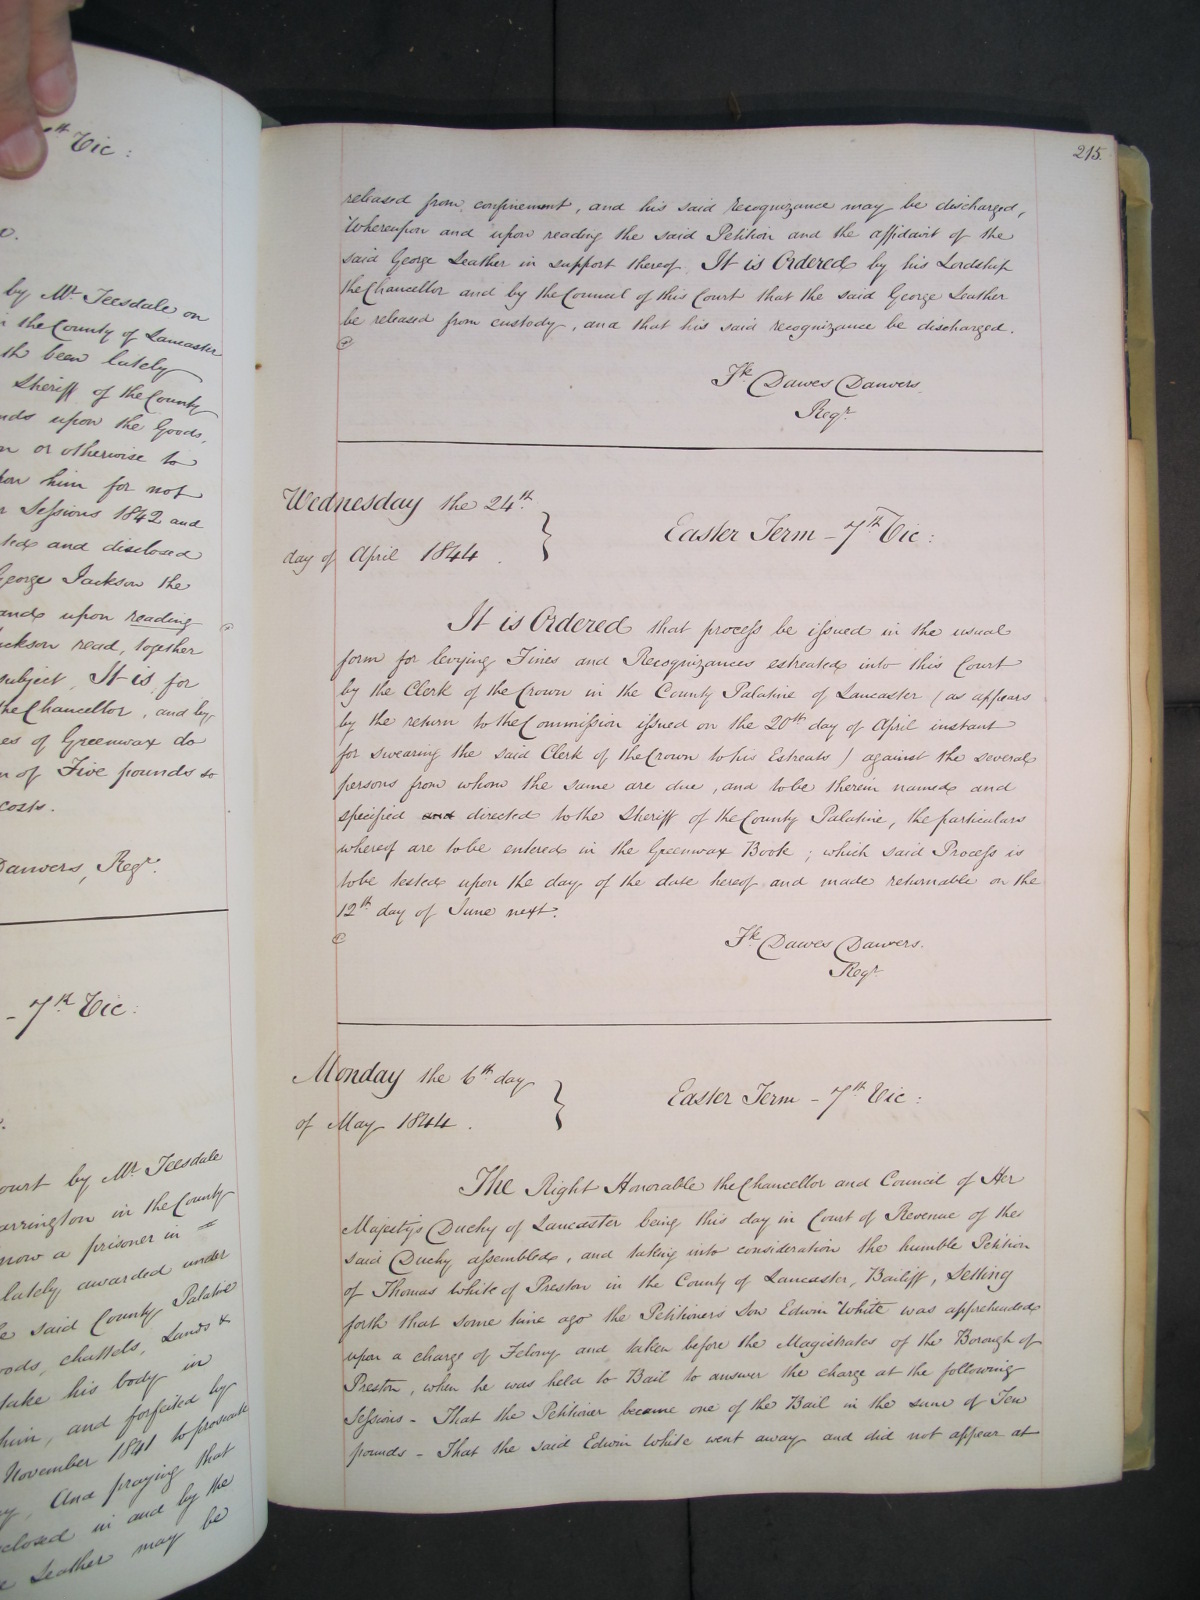 th Vic:
by Mr. Teesdale on
the County of Lancaster
th been lately
Sheriff of the County
nds upon the Goods,
n or otherwise to
him for not
Sessions 1842 and
ted and disclosed
George Jackson the
and upon reading
ackson read, together
subject, It is for
the Chancellor, and by
es of Greenwax do
n of Five pounds so
costs.
Danvers, Regr.
- 7th Vic:
ourt by Mr. Teesdale
arrington in the County
now a prisoner in =
lately awarded under
e said County Palatine
oods, chattels, Lands &
take his body in
him, and forfeited by
November 1841 to prosecute
And praying that
closed in and by the
Leather may be
215.
released from confinement, and his said recognizance may be discharged,
Whereupon and upon reading the said Petition and the affidavit of the
said George Leather in support thereof It is Ordered by his Lordship
the Chancellor and by the Council of this Court that the said George Leather
be released from custody, and that his said recognizance be discharged.
Fk. Dawes Danvers.
Regr.
Wednesday the 24th.
day of April 1844.
Easter Term - 7th Vic:
It is Ordered that process be issued in the usual
form for levying Fines and Recognizances estreated into this Court
by the Clerk of the Crown in the County Palatine of Lancaster (as appears
by the return to the Commission issued on the 20th day of April instant
for swearing the said Clerk of the Crown to his Estreats) against the several
persons from whom the same are due, and to be therein named and
specified and directed to the Sheriff of the County Palatine, the particulars
whereof are to be entered in the Greenwax Book; which said Process is
to be tested upon the day of the date hereof and made returnable on the
12th day of June next.
Fk. Dawes Danvers.
Regr.
Monday the 6th day
of May 1844.
Easter Term - 7th Vic:
The Right Honorable the Chancellor and Council of Her
Majesty's Duchy of Lancaster being this day in Court of Revenue of the
said Duchy assembled, and taking into consideration the humble Petition
of Thomas White of Preston in the County of Lancaster, Bailiff, Setting
forth that some time ago the Petitioners Son Edwin White was apprehended
upon a charge of Felony and taken before the Magistrates of the Borough of
Preston, when he was held to Bail to answer the charge at the following
Sessions - That the Petitioner became one of the Bail in the sum of Ten
pounds - That the said Edwin White went away and did not appear at